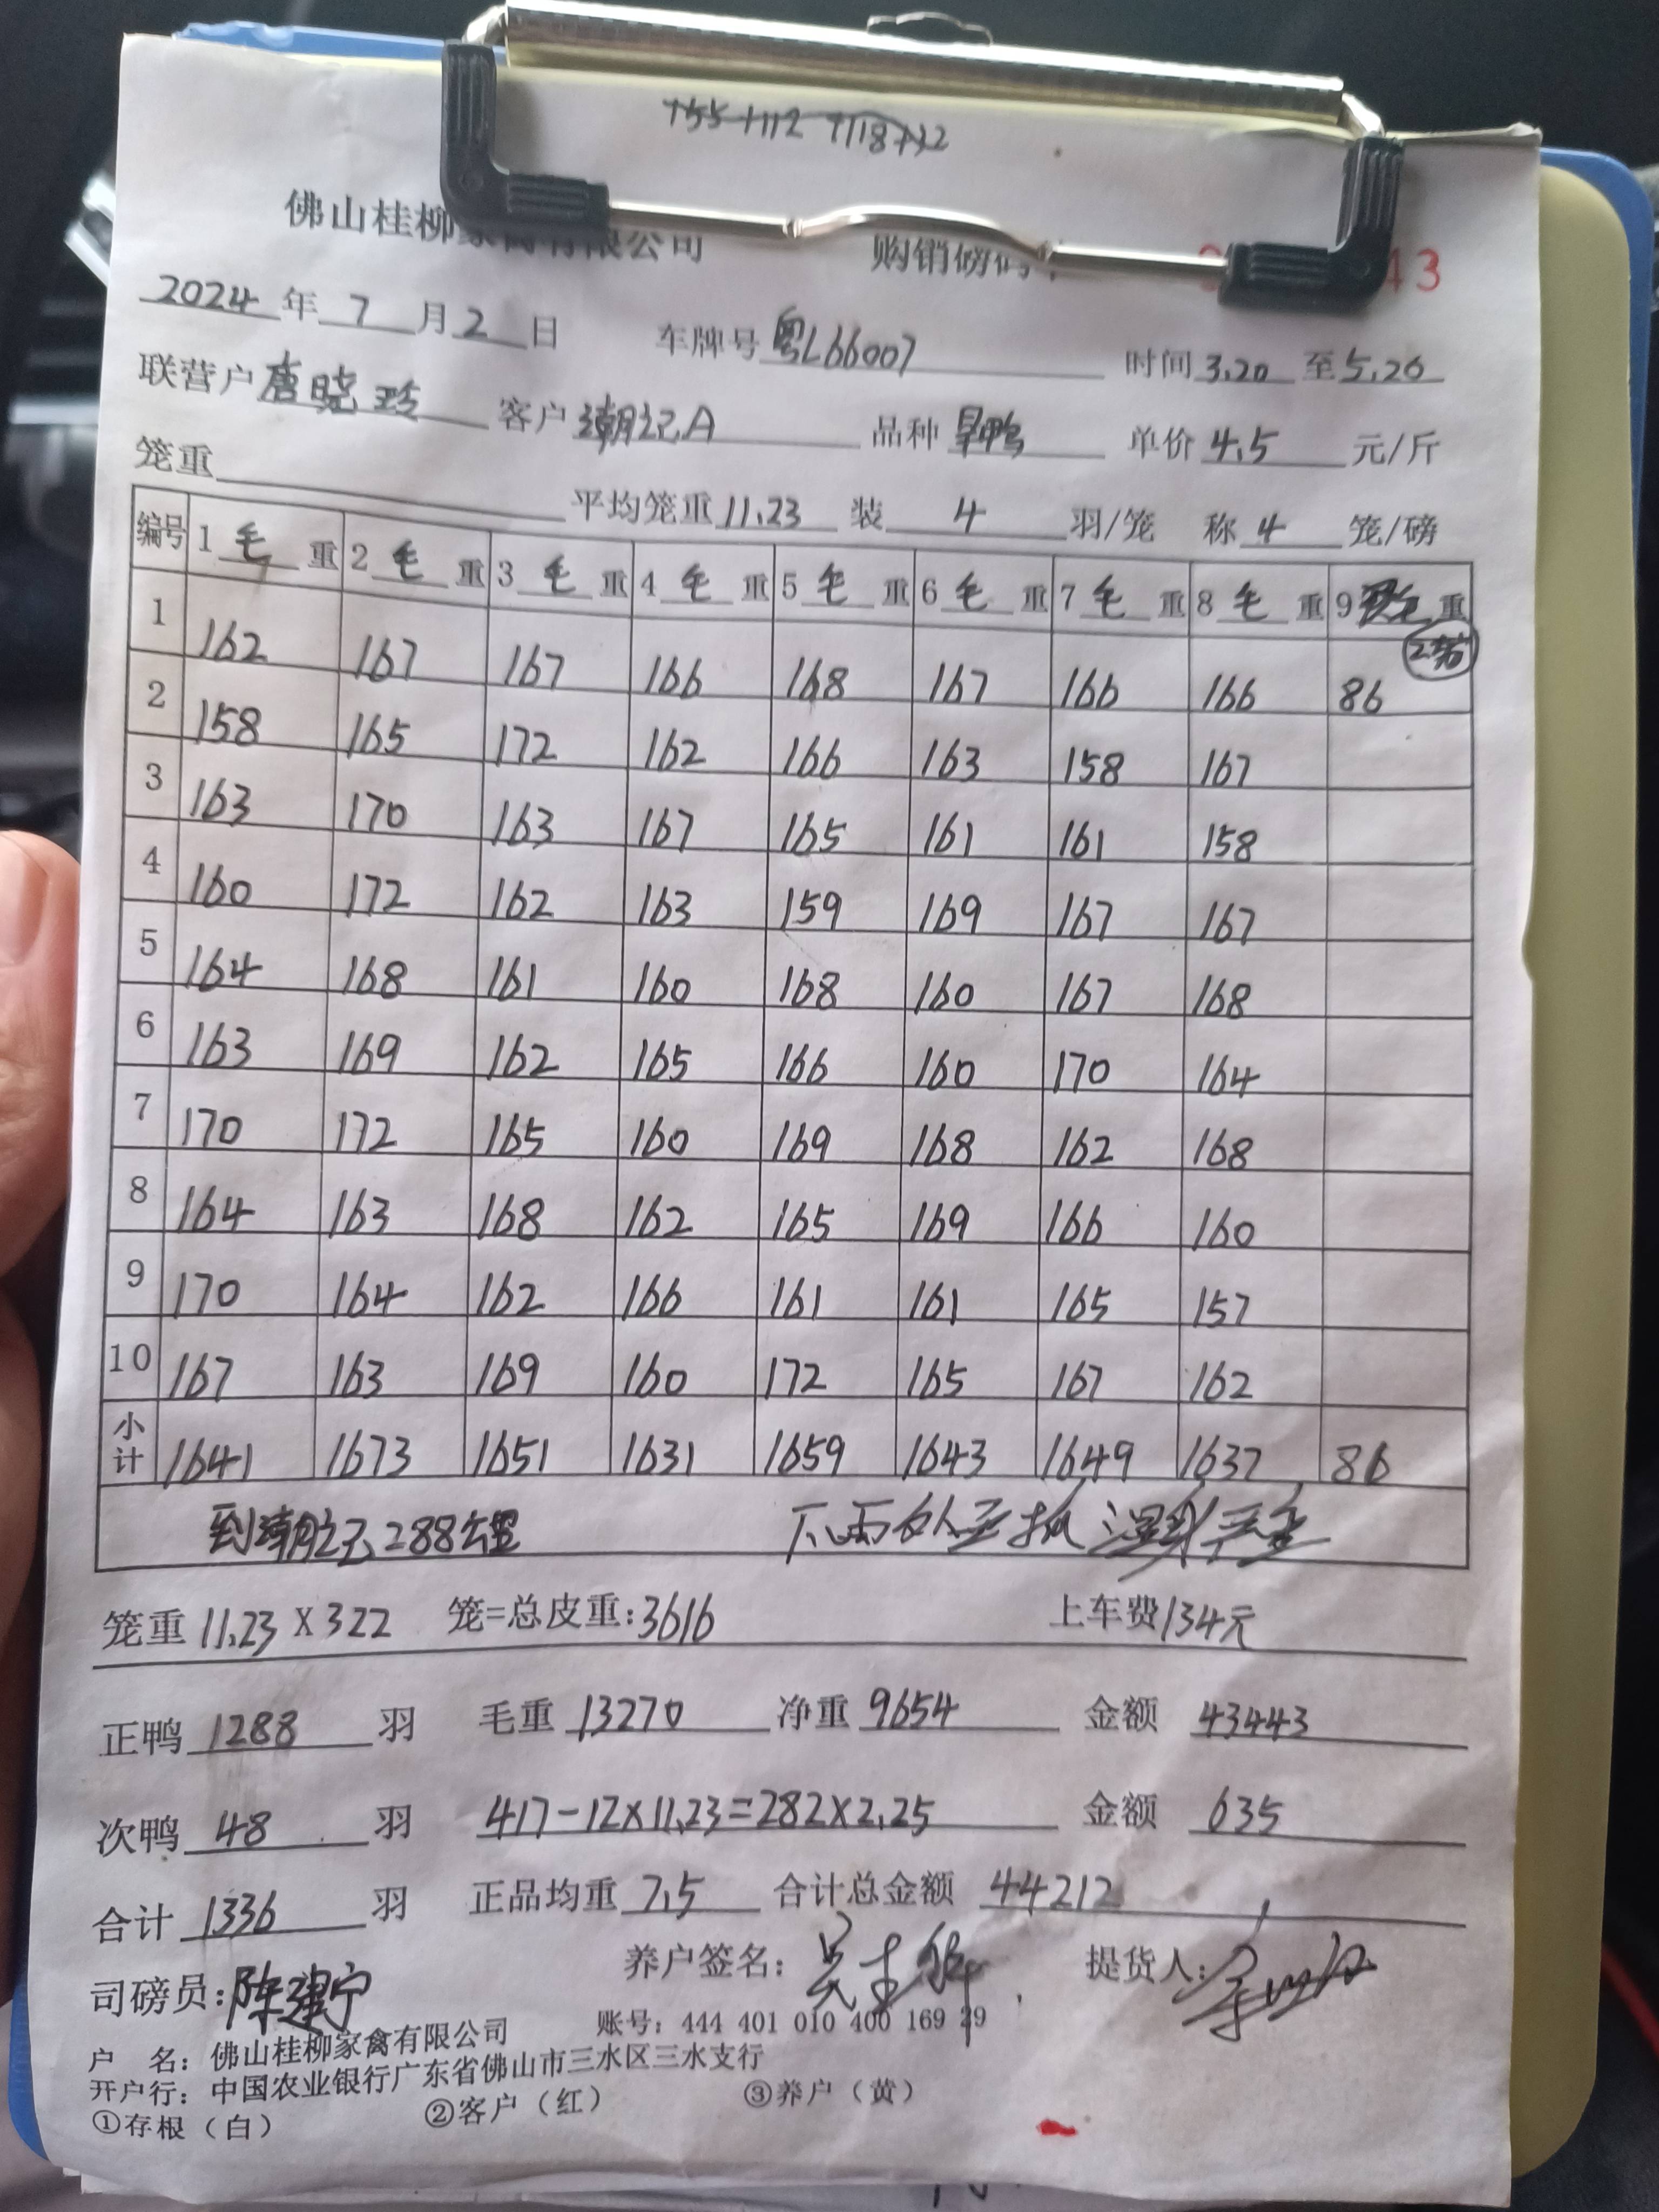 佛山桂柳家禽有限公司 购销磅码 43
2024年7月2日 车牌号粤L66007 时间3.20至5.20
联营户唐晓玲 客户潮记A 品种旱鸭 单价4.5元/斤
笼重 平均笼重11.23 装4羽/笼 称4笼/磅
编号 1毛重 2毛重 3毛重 4毛重 5毛重 6毛重 7毛重 8毛重 9毛重
2笼
1 162 167 167 166 168 167 166 166 86
2 158 165 172 162 166 163 158 167
3 163 170 163 167 165 161 161 158
4 160 172 162 163 159 169 167 167
5 164 168 161 160 168 160 167 168
6 163 169 162 165 166 160 170 164
7 170 172 165 160 169 168 162 168
8 164 163 168 162 165 169 166 160
9 170 164 162 166 161 161 165 157
10 167 163 169 160 172 165 167 162
小计 1641 1673 1651 1631 1659 1643 1649 1637 86
到潮记288公里 下雨
笼重11.23×322 笼=总皮重:3616 上车费134元
正鸭1288羽 毛重13270 净重9654 金额43443
次鸭48羽 417-12×11.23=282×2.25 金额635
合计1336羽 正品均重7.5 合计总金额44212
司磅员:陈建宁 养户签名: 提货人:
户 名:佛山桂柳家禽有限公司 账号:444 401 010 400 169 29
开户行:中国农业银行广东省佛山市三水区三水支行
①存根(白) ②客户(红) ③养户(黄)